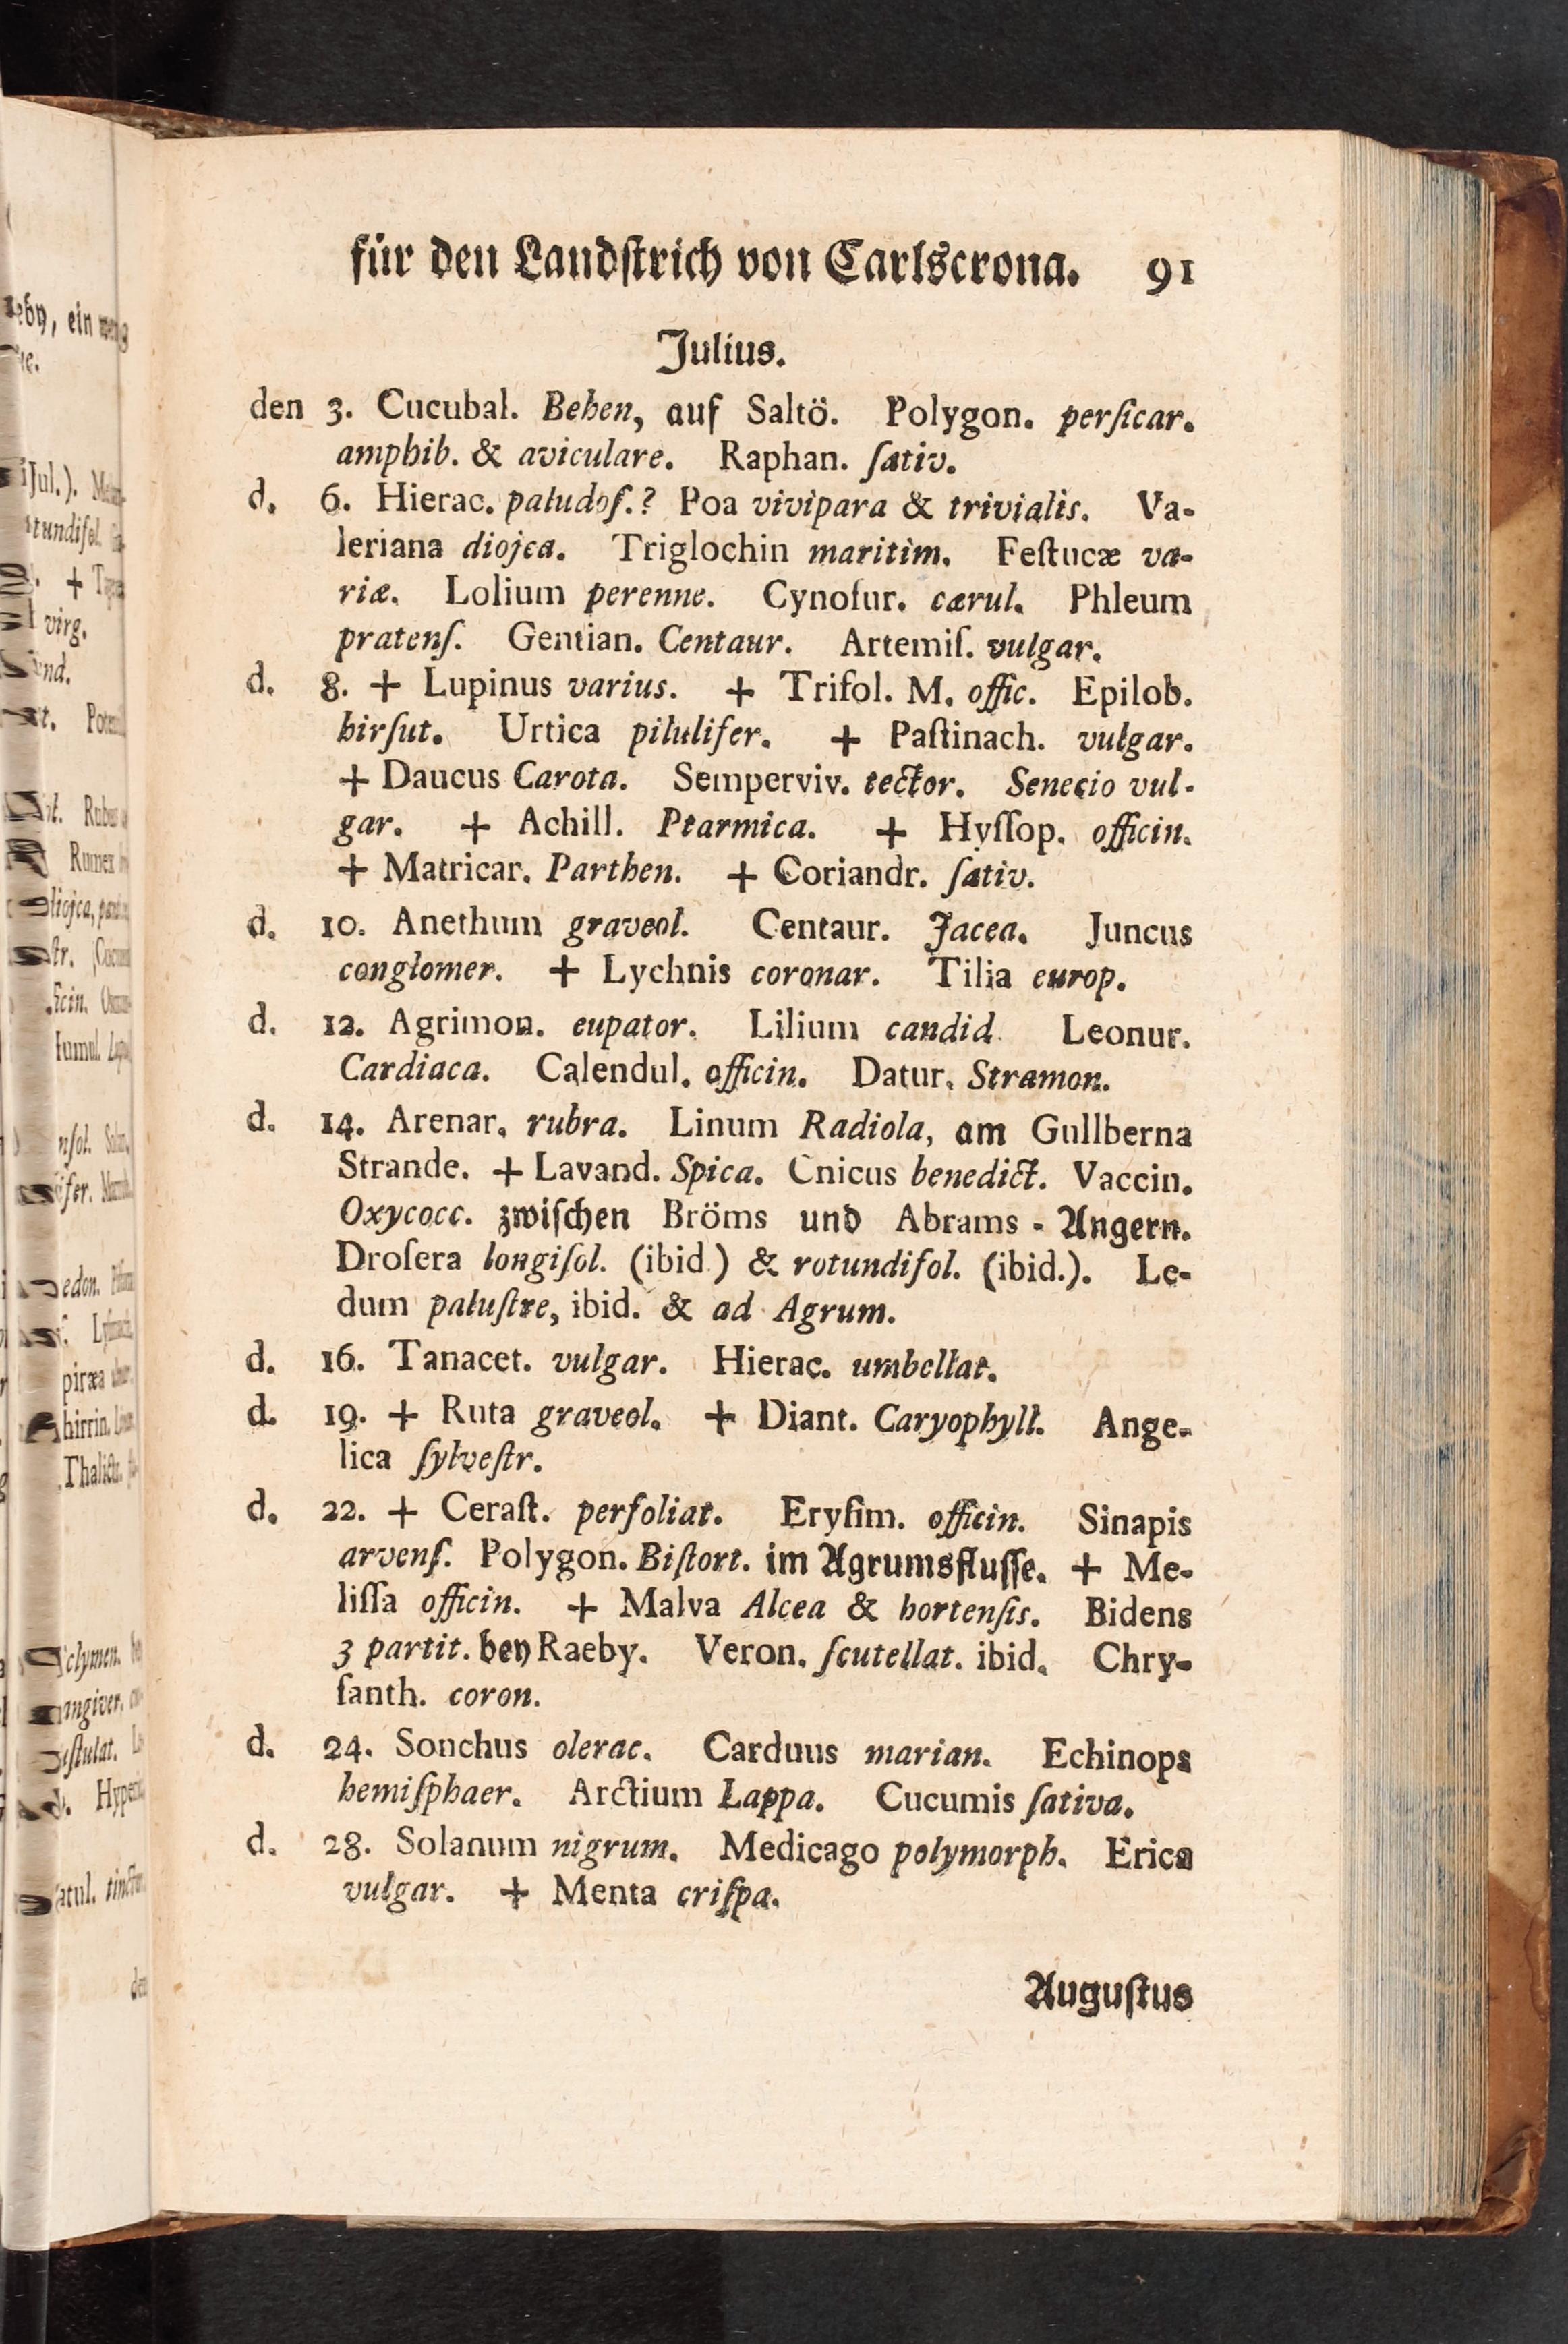 für den Landſtrich von Carlscrona. 91
Julius.
den 3. Cucubal. Behen, auf Saltö. Polygon. perſicar.
amphib. & aviculare. Raphan. ſativ.
d. 6. Hierac. paludoſ.? Poa vivipara & trivialis. Va-
leriana diojca. Triglochin maritim. Feſtucæ va-
riæ. Lolium perenne. Cynoſur. cærul. Phleum
pratenſ. Gentian. Centaur. Artemiſ. vulgar.
d. 8. + Lupinus varius. + Trifol. M. offic. Epilob.
hirſut. Urtica pilulifer. + Paſtinach. vulgar.
+ Daucus Carota. Semperviv. tector. Senecio vul-
gar. + Achill. Ptarmica. + Hyſſop. officin.
+ Matricar. Parthen. + Coriandr. ſativ.
d. 10. Anethum graveol. Centaur. Jacea. Juncus
conglomer. + Lychnis coronar. Tilia europ.
d. 12. Agrimon. eupator. Lilium candid. Leonur.
Cardiaca. Calendul. officin. Datur. Stramon.
d. 14. Arenar. rubra. Linum Radiola, am Gullberna
Strande. + Lavand. Spica. Cnicus benedict. Vaccin.
Oxycocc. zwiſchen Bröms und Abrams - Angern.
Droſera longifol. (ibid.) & rotundifol. (ibid.). Le-
dum paluſtre, ibid. & ad Agrum.
d. 16. Tanacet. vulgar. Hierac. umbellat.
d. 19. + Ruta graveol. + Diant. Caryophyll. Ange-
lica ſylveſtr.
d. 22. + Ceraſt. perfoliat. Eryſim. officin. Sinapis
arvenſ. Polygon. Biſtort. im Agrumsfluſſe. + Me-
liſſa officin. + Malva Alcea & hortenſis. Bidens
3 partit. bey Raeby. Veron. ſcutellat. ibid. Chry-
ſanth. coron.
d. 24. Sonchus olerac. Carduus marian. Echinops
hemiſphaer. Arctium Lappa. Cucumis ſativa.
d. 28. Solanum nigrum. Medicago polymorph. Erica
vulgar. + Menta criſpa.
Auguſtus